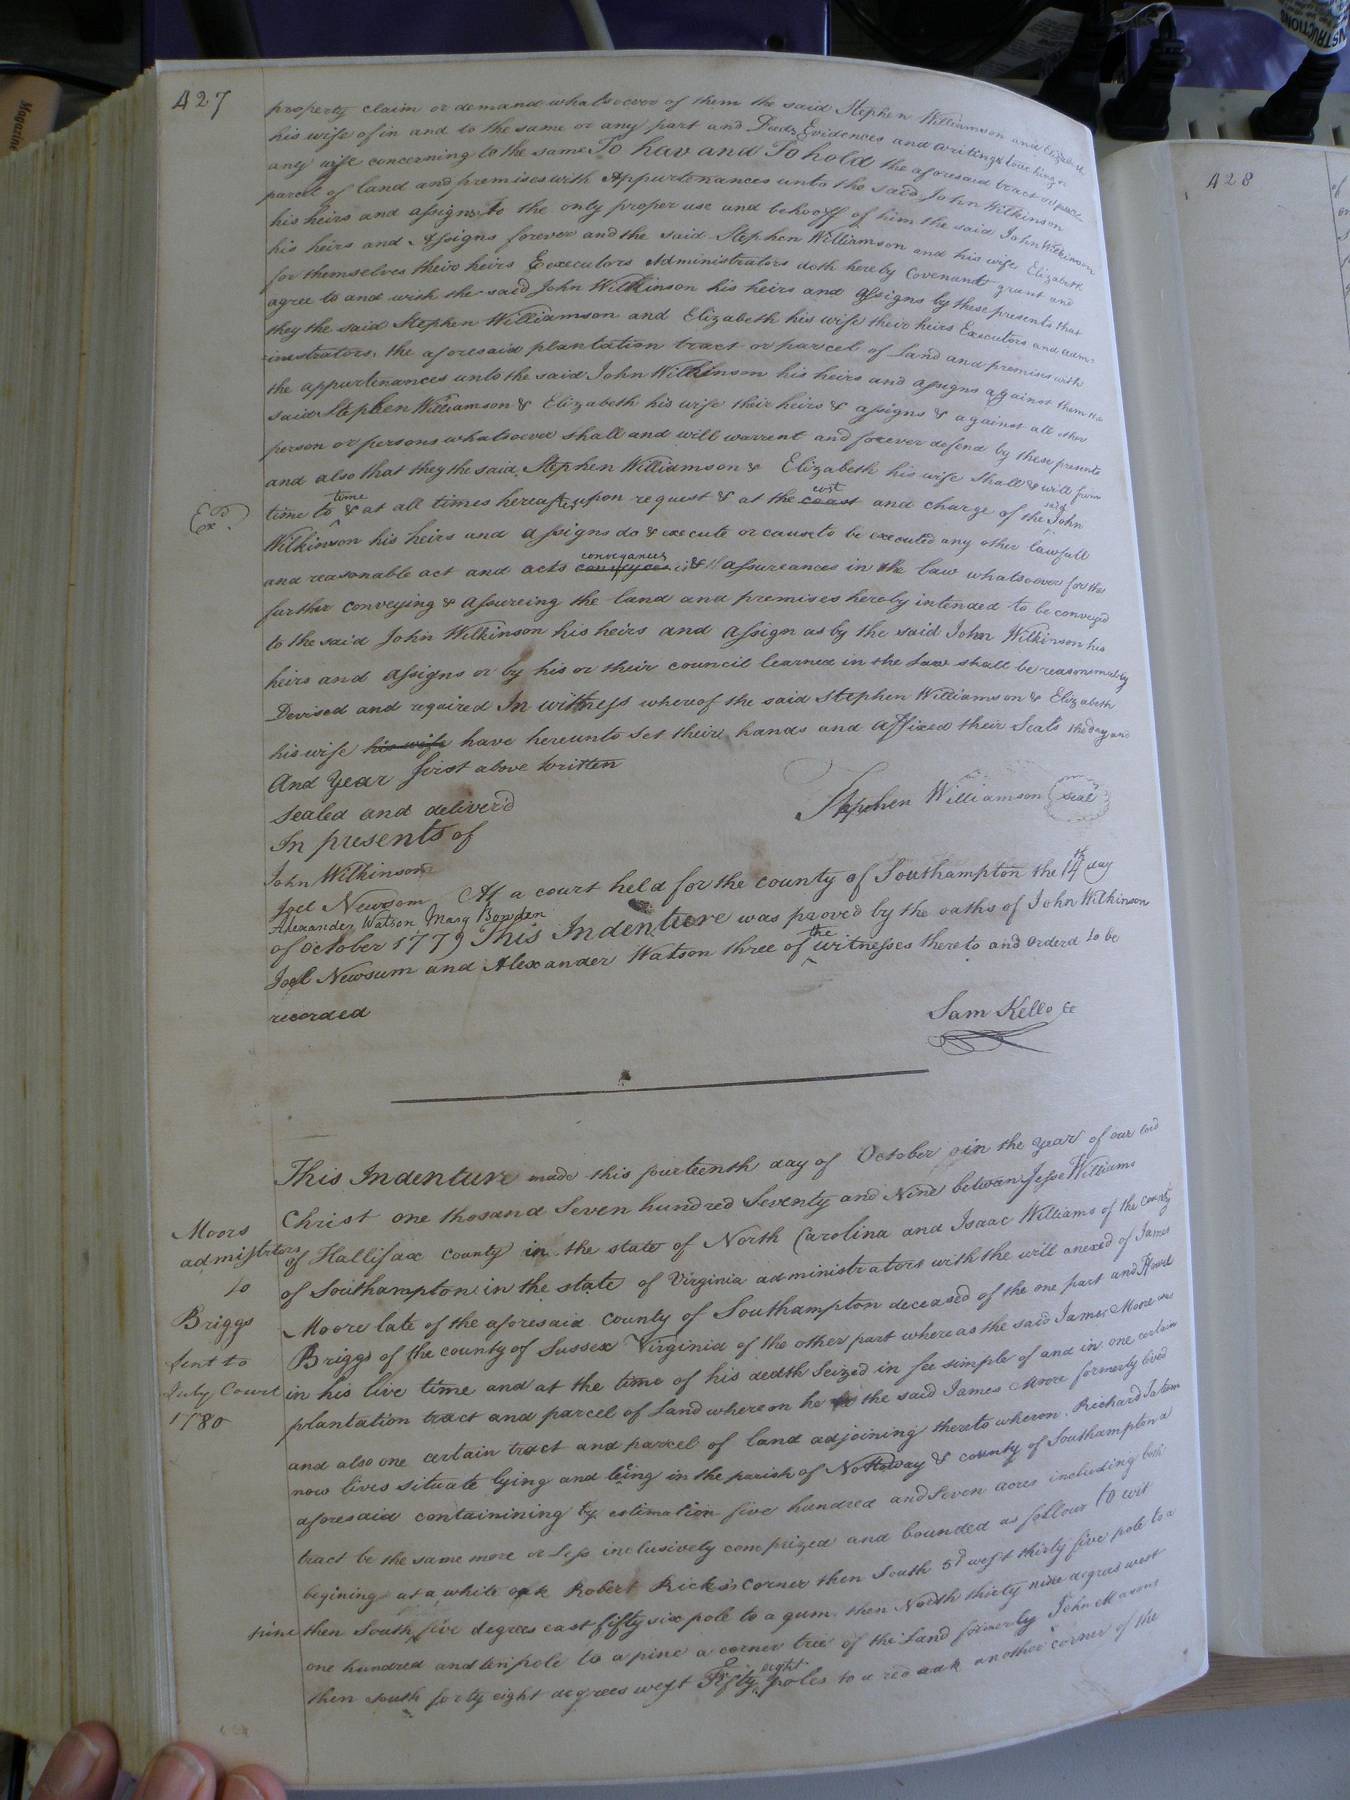 427
property claim or demand whatsoever of them the said Stephen Williamson and Elizabeth
his wife of in and to the same or any part and Deeds Evidences and writings touching or
any wise concerning to the same To hav and To hold the aforesaid tract or
parcel of land and premises with Appurtenances unto the said John Wilkinson
his heirs and assigns to the only proper use and behooff of him the said John Wilkinson
his heirs and Assigns forever and the said Stephen Williamson and his wife Elizabeth
for themselves their heirs Executors Administrators doth hereby Covenant grant and
agree to and with the said John Wilkinson his heirs and assigns by these presents that
they the said Stephen Williamson and Elizabeth his wife their heirs Executors and adm-
inestrators, the aforesaid plantation tract or parcel of Land and premises with
the appurtenances unto the said John Wilkinson his heirs and assigns against them the
said Stephen Williamson & Elizabeth his wife their heirs & assigns & against all other
person or persons whatsoever shall and will warrent and forever defend by these presents
and also that they the said Stephen Williamson & Elizabeth his wife shall & will from
time to time & at all times hereafter upon request & at the coast cost and charge of the said John
Exd.
Wilkinson his heirs and assigns do & execute or cause to be executed any other lawfull
and reasonable act and acts conveyances & assureances in the law whatsoever for the
further conveying & assureing the land and premises hereby intended to be conveyed
to the said John Wilkinson his heirs and assign as by the said John Wilkinson his
heirs and assigns or by his or their council learned in the Law shall be reasonnably
Devised and reqaired In wittness whereof the said Stephen Williamson & Elizabeth
his wife his wife have hereunto set their hands and affixed their Seals the day and
And Year first above written
Sealed and deliver'd
Stephen Williamson seal
In presents of
John Wilkinson
Joel Newsom
At a court held for the county of Southampton the 14th day
Alexander Watson Mary Bowden
of October 1779 This Indenture was proved by the oaths of John Wilkinson
Joel Newsum and Alexander Watson three of the witnesses thereto and orderd to be
recorded
Sam Kello Cc
This Indenture made this fourteenth day of October in the year of our lord
Christ one thosand Seven hundred Seventy and Nine betwen Jesse Williams
Moors
admistrtors
to
Briggs
Sent to
July Court
1780
of Hallifax county in the state of North Carolina and Isaac Williams of the county
of Southampton in the state of Virginia administrators with the will anexed of James
Moore late of the aforesaid county of Southampton deceased of the one part and
Briggs of the county of Sussex Virginia of the other part whereas the said James Moore
in his live time and at the time of his dedth Seized in fee simple of and in one certain
plantation tract and parcel of Land whereon he the said James Moore formerly lived
and also one certain tract and parcel of land adjoining thereto wheron Richard Tatem
now lives situate lying and being in the parish of Nottoway & county of Southampton
aforesaid containining by estimation five hundred and Seven acres including both
tract be the same more or less inclusively comprized and bounded as follows to wit
begining at a white oak Robert Ricks's corner then South 5d west thirty five pole to a
pine then South five degrees east fifty six pole to a gum then North thirty nine degrees west
one hundred and ten pole to a pine a corner tree of the Land formerly John Masons
then south forty eight degrees west Fifty eight poles to a red oak another corner of the
428
Magazine